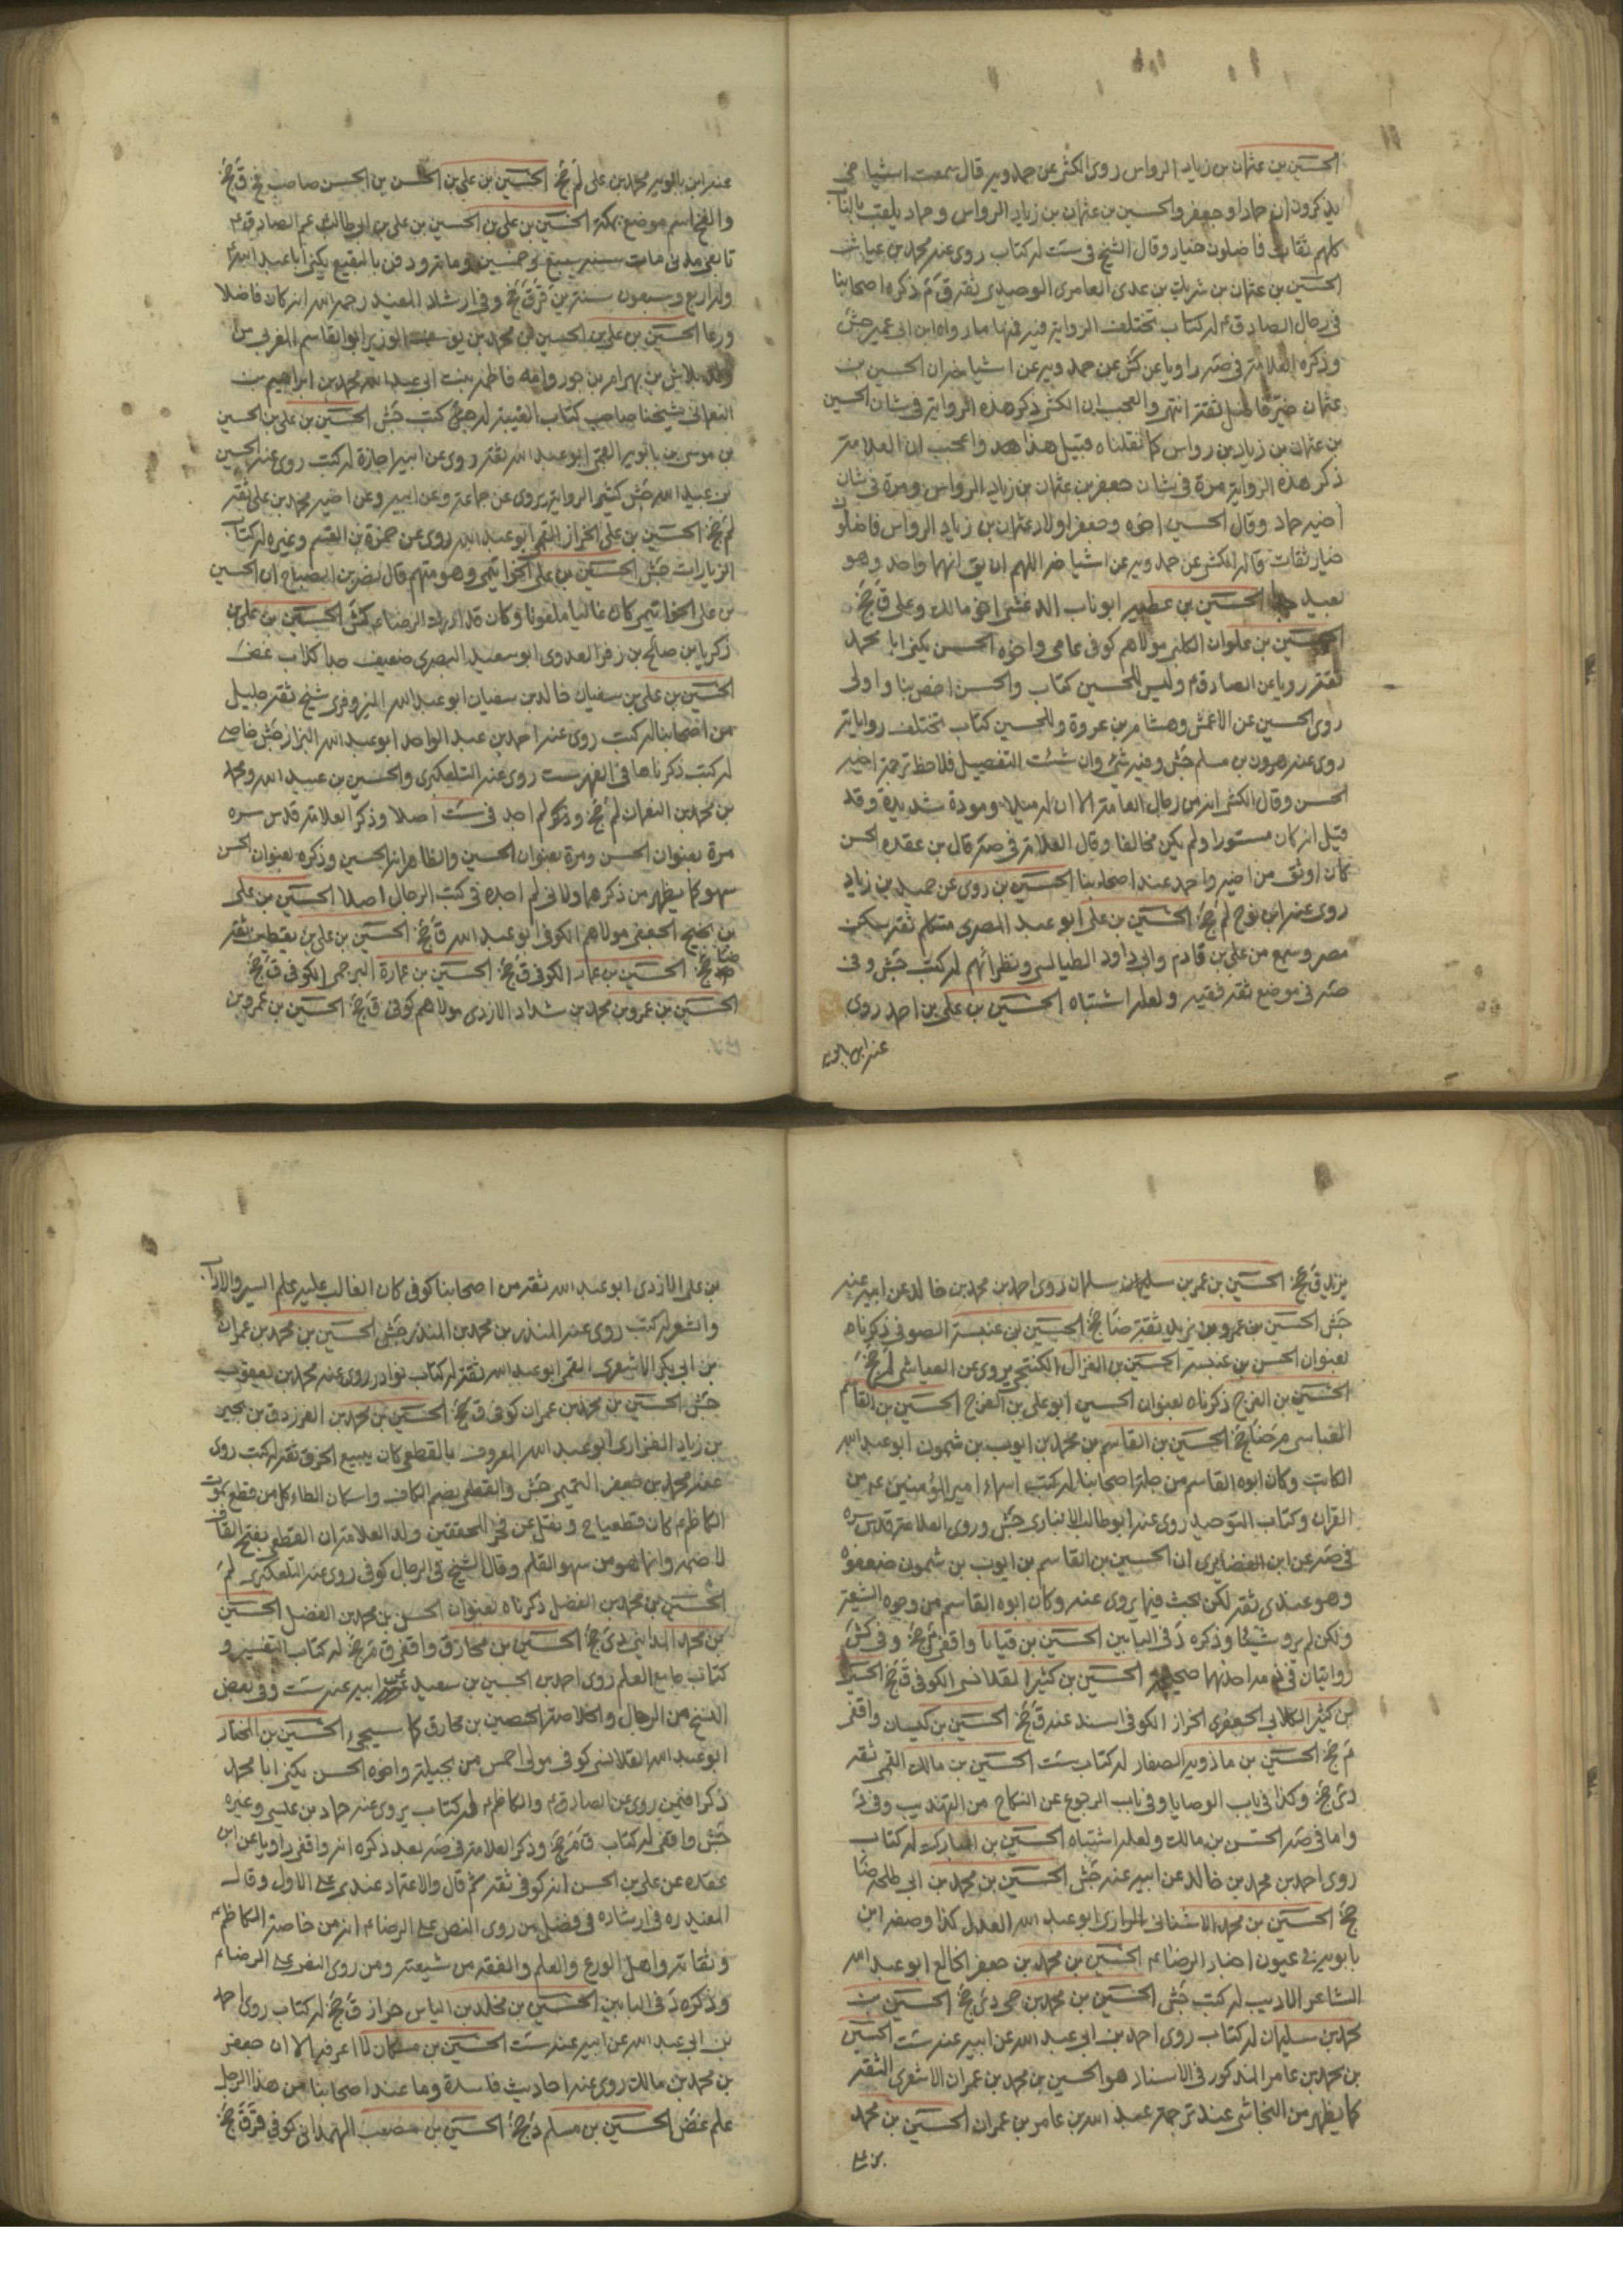 الحسين بن عثمان بن زياد الرواس روى الكشى عن حمدويه قال سمعت اشياخى
يذكرون ان حمادا وجعفر والحسين بن عثمان بن زياد الرواس وحماد يلقب بالناب
كلهم ثقات فاضلون خيار وقال الشيخ فى ست له كتاب روى عنه محمد بن عياش
الحسين بن عثمان بن شريك بن عدى العامرى الوحيدى ثقة ق م ذكره اصحابنا
فى رجال الصادق ع له كتاب تختلف الرواية فيه فمنها ما رواه ابن ابى عمير جش
وذكره العلامة فى صه راويا عن كش عن حمدويه عن اشياخه ان الحسين بن
عثمان خير فاضل ثقة انتهى والعجب ان الكشى ذكر هذه الرواية فى شان الحسين
بن عثمان بن زياد بن رواس كما نقلناه قبيل هذا هد واعجب ان العلامة
ذكر هذه الرواية مرة فى شان جعفر بن عثمان بن زياد الرواس ومرة فى شان
اخيه حماد وقال الحسين اخوه وجعفر اولاد عثمان بن زياد الرواس فاضلون
خيار ثقات قاله الكشى عن حمدويه عن اشياخه اللهم ان يق انهما واحد وهو
بعيد جدا الحسين بن عطية ابو ناب الدغشى اخو مالك وعلى ق جخ
الحسين بن علوان الكلبى مولاهم كوفى عامى واخوه الحسن يكنى ابا محمد
ثقة رويا عن الصادق ع وليس للحسين كتاب والحسن اخص بنا واولى
روى الحسين عن الاعمش وهشام بن عروة وللحسين كتاب تختلف رواياته
روى عنه هرون بن مسلم جش وفيه شئ وان شئت التفصيل فلاحظ ترجمة اخيه
الحسن وقال الكشى انه من رجال العامة الا ان له ميلا ومودة شديدة وقد
قيل انه كان مستورا ولم يكن مخالفا وقال العلامة فى صه قال بن عقده الحسن
كان اوثق من اخيه واحمد عند اصحابنا الحسين بن روى عن حميد بن زياد
روى عنه ابن نوح لم جخ الحسين بن على ابو عبد المصرى متكلم ثقة سكن
مصر وسمع من على بن قادم وابى داود الطيالسى ونظرائهم له كتب جش وفى
صه فى موضع ثقة فقيه ولعله اشتباه الحسين بن على بن احمد روى
عنه ابن بابويه
عنه ابن بابويه محمد بن على لم جخ الحسين بن على بن الحسن بن الحسن صاحب فخ ق جخ
والفخ اسم موضع بمكة الحسين بن على بن الحسين بن على بن ابى طالب ع عم الصادق ع
تابعى مدنى مات سنة سبع وخمسين وماته ودفن بالبقيع يكنى ابا عبد الله
وله اربع وسبعون سنة ين قر ق جخ وفى ارشاد المفيد رحمه الله انه كان فاضلا
ورعا الحسين بن على بن الحسين بن محمد بن يوسف الوزير ابو القاسم المغربى من
ولد بلاش بن بهرام بن جور وامه فاطمة بنت ابى عبد الله محمد بن ابراهيم بن
النعمانى شيخنا صاحب كتاب الغيبة له كتب جش الحسين بن على بن الحسين
بن موسى بن بابويه القمى ابو عبد الله ثقة روى عن ابيه اجازة له كتب روى عنه الحسين
بن عبيد الله جش كثير الرواية يروى عن جماعة وعن ابيه وعن اخيه محمد بن على ثقة
لم جخ الحسين بن على الخزاز القمى ابو عبد الله روى عن حمزة بن القسم وغيره له كتاب
الزيارات جش الحسين بن على الخواتيمى وهو متهم قال نصر بن الصباح ان الحسين
بن على الخواتيمى كان غاليا ملعونا وكان قد ادرك الرضا ع كش الحسين بن على بن
زكريا بن صالح بن زفر العدوى ابو سعيد البصرى ضعيف جدا كذاب غض
الحسين بن على بن سفيان خالد بن سفيان ابو عبد الله البزوفرى شيخ ثقة جليل
من اصحابنا له كتب روى عنه احمد بن عبد الواحد ابو عبد الله البزاز جش خاصى
له كتب ذكرناها فى الفهرست روى عنه التلعكبرى والحسين بن عبيد الله ومحمد
بن محمد بن النعمان لم جخ وذكره لم اجد فى ست اصلا وذكر العلامة قدس سره
مرة بعنوان الحسن ومرة بعنوان الحسين والظاهر انه الحسين وذكره بعنوان الحسن
سهو كما يظهر من ذكرهما ولانى لم اجده فى كتب الرجال اصلا الحسين بن على
بن نجيح الجعفى مولاهم الكوفى ابو عبد الله ق جخ الحسين بن على بن يقطين ثقة
ضا جخ الحسين بن عمار الكوفى ق جخ الحسين بن عمارة البرجمى الكوفى ق جخ
الحسين بن عمرو بن محمد بن شداد الازدى مولاهم كوفى ق جخ الحسين بن عمرو بن
يزيد ق جخ الحسين بن عمر بن سليمان سلمان روى احمد بن محمد بن خالد عن ابيه عنه
جش الحسين بن عمرو بن يزيد ثقة ضا جخ الحسين بن عنبسة الصوفى ذكرناه
بعنوان الحسن بن عنبسة الحسين بن الغزال الكنتجى يروى عن العياشى لم جخ
الحسين بن الفرج ذكرناه بعنوان الحسين ابو على بن الفرج الحسين بن القاسم
العباسى م ضا جخ الحسين بن القاسم بن محمد بن ايوب بن شمون ابو عبد الله
الكاتب وكان ابوه القاسم من جلة اصحابنا له كتب اسماء امير المؤمنين ع من
القران وكتاب التوحيد روى عنه ابو طالب الانبارى جش وروى العلامة قدس سره
فى صه عن ابن الغضايرى ان الحسين بن القاسم بن ايوب بن شمون ضعفوه
وهو عندى ثقة لكن بحث فيما يروى عنه وكان ابوه القاسم من وجوه الشيعة
ولكن لم يرو شيئا وذكره د فى البابين الحسين بن قياما واقفى م جخ وفى كش
روايتان فى ذمه احدنهما صحيح الحسين بن كثير القلانسى الكوفى ق جخ الحسين
بن كثير الكلابى الجعفرى الخزاز الكوفى اسند عنه ق جخ الحسين بن كيسان واقفى
م جخ الحسين بن ماذويه الصفار له كتاب ست الحسين بن مالك القمى ثقة
دى جخ وكذا فى باب الوصايا وفى باب الرجوع عن النكاح من التهذيب وفى د
واما فى صه الحسن بن مالك ولعله اشتباه الحسين بن المبارك له كتاب
روى احمد بن محمد بن خالد عن ابيه عنه جش الحسين بن محمد بن ابى طلحة ضا
جخ الحسين بن محمد الاشنانى الرازى ابو عبد الله العدل كذا وصفه ابن
بابويه فى عيون اخبار الرضا ع الحسين بن محمد بن جعفر الخالع ابو عبد الله
الشاعر الاديب له كتب جش الحسين بن محمد بن حى دى جخ الحسين بن
محمد بن سليمان له كتاب روى احمد بن ابى عبد الله عن ابيه عنه ست الحسين
بن محمد بن عامر المذكور فى الاسناد هو الحسين بن محمد بن عمران الاشعرى الثقة
كما يظهر من النجاشى عند ترجمة عبد الله بن عامر بن عمران الحسين بن محمد
بن على
بن على الازدى ابو عبد الله ثقة من اصحابنا كوفى كان الغالب عليه علم السير والاداب
والشعر له كتب روى عنه المنذر بن محمد بن المنذر جش الحسين بن محمد بن عمران
بن ابى بكر الاشعرى القمى ابو عبد الله ثقة له كتاب نوادر روى عنه محمد بن يعقوب
جش الحسين بن محمد بن عمران كوفى ق جخ الحسين بن محمد بن الفرزدق بن بجير
بن زياد الفزارى ابو عبد الله المعروف بالقطعى كان يبيع الخرق ثقة له كتب روى
عنه محمد بن جعفر التميمى جش والقطعى بضم الكاف واسكان الطاء كل من قطع بموت
الكاظم ع كان قطعيا ح ونقل عن فخر المحققين ولد العلامة ان القطعى بفتح القاف
لا ضمه وانما هو من سهو القلم وقال الشيخ فى الرجال كوفى روى عنه التلعكبرى لم
الحسين بن محمد بن الفضل ذكرناه بعنوان الحسن بن محمد بن الفضل الحسين
بن محمد المداينى دى جخ الحسين بن مخارق واقفى ق م جخ له كتاب التفسير و
كتاب جامع العلم روى احمد بن الحسين بن سعيد عن ابيه عنه ست وفى بعض
النسخ من الرجال والخلاصة الحصين بن مخارق كما سيجئ الحسين بن المختار
ابو عبد الله القلانسى كوفى مولى احمس من بجيلة واخوه الحسن يكنى ابا محمد
ذكرا فيمن روى عن الصادق ع والكاظم ع له كتاب يروى عنه حماد بن عيسى وغيره
جش واقفى له كتاب ق م جخ وذكر العلامة فى صه بعد ذكره انه واقفى راويا عن ابن
عقده عن على بن الحسن انه كوفى ثقة ثم قال والاعتماد عندى على الاول وقال
المفيد ره فى ارشاده فى فضل من روى النص على الرضا ع انه من خاصة الكاظم ع
وثقاته واهل الورع والعلم والفقه من شيعته ومن روى النص على الرضا ع
وذكره د فى البابين الحسين بن مخلد بن الياس خزاز ق جخ له كتاب روى احمد
بن ابى عبد الله عن ابيه عنه ست الحسين بن مسكان لا اعرفه الا ان جعفر
بن محمد بن مالك روى عنه احاديث فاسدة وما عند اصحابنا من هذا الرجل
علم غض الحسين بن مسلم دى جخ الحسين بن مصعب الهمدانى كوفى قر ق جخ